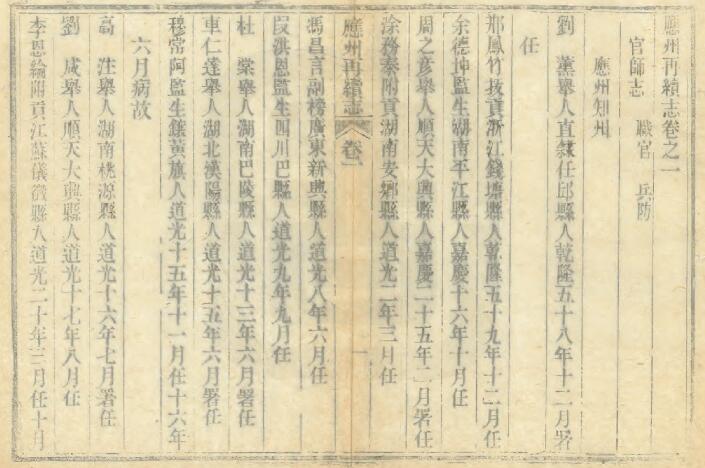 應州再續志卷之一
官師志　職官　兵防
應州知州
劉　薰舉人直隸任邱縣人乾隆五十八年十二月署
任
鄭鳳竹拔貢浙江錢塘縣人乾隆五十九年十二月任
余德坤監生湖南平江縣人嘉慶十六年十月任
周之彥舉人順天大興縣人嘉慶二十五年二月署任
涂務泰附貢湖南安鄉縣人道光二年三月任
應州再續志　卷一　一
馮昌言副榜廣東新興縣人道光八年六月任
段洪恩監生四川巴縣人道光九年九月任
杜　棠舉人湖南巴陵縣人道光十三年六月署任
車仁蓬舉人湖北漢陽縣人道光十五年六月署任
穆常阿監生鑲黃旗人道光十五年十一月任十六年
六月病故
高　注舉人湖南桃源縣人道光十六年七月署任
劉　咸舉人順天大興縣人道光十七年八月任
李恩綸附貢江蘇儀徵縣人道光二十年三月任十月